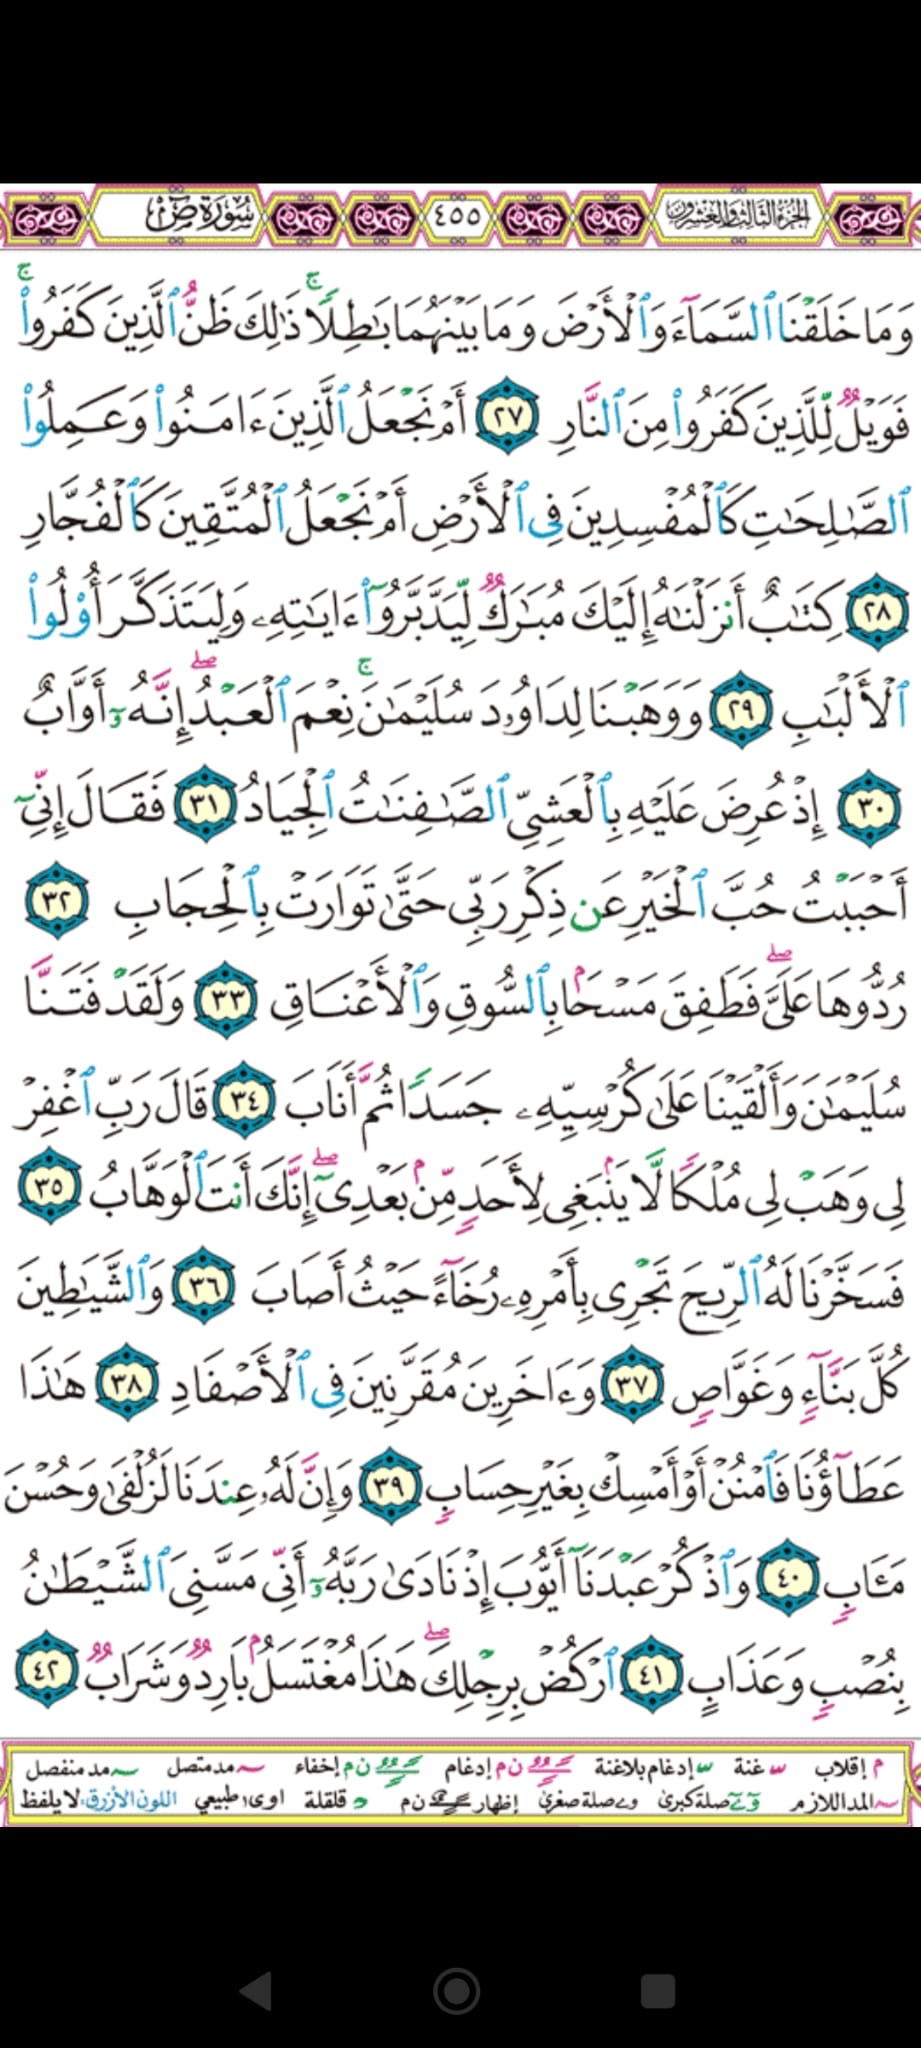 الجزء الثالث والعشرون ٤٥٥ سورة ص
وَمَا خَلَقْنَا ٱلسَّمَآءَ وَٱلْأَرْضَ وَمَا بَيْنَهُمَا بَٰطِلًا ۚ ذَٰلِكَ ظَنُّ ٱلَّذِينَ كَفَرُوا۟ ۚ
فَوَيْلٌ لِّلَّذِينَ كَفَرُوا۟ مِنَ ٱلنَّارِ ٢٧ أَمْ نَجْعَلُ ٱلَّذِينَ ءَامَنُوا۟ وَعَمِلُوا۟
ٱلصَّٰلِحَٰتِ كَٱلْمُفْسِدِينَ فِى ٱلْأَرْضِ أَمْ نَجْعَلُ ٱلْمُتَّقِينَ كَٱلْفُجَّارِ
٢٨ كِتَٰبٌ أَنزَلْنَٰهُ إِلَيْكَ مُبَٰرَكٌ لِّيَدَّبَّرُوٓا۟ ءَايَٰتِهِۦ وَلِيَتَذَكَّرَ أُو۟لُوا۟
ٱلْأَلْبَٰبِ ٢٩ وَوَهَبْنَا لِدَاوُۥدَ سُلَيْمَٰنَ ۚ نِعْمَ ٱلْعَبْدُ ۖ إِنَّهُۥٓ أَوَّابٌ
٣٠ إِذْ عُرِضَ عَلَيْهِ بِٱلْعَشِىِّ ٱلصَّٰفِنَٰتُ ٱلْجِيَادُ ٣١ فَقَالَ إِنِّىٓ
أَحْبَبْتُ حُبَّ ٱلْخَيْرِ عَن ذِكْرِ رَبِّى حَتَّىٰ تَوَارَتْ بِٱلْحِجَابِ ٣٢
رُدُّوهَا عَلَىَّ ۖ فَطَفِقَ مَسْحًۢا بِٱلسُّوقِ وَٱلْأَعْنَاقِ ٣٣ وَلَقَدْ فَتَنَّا
سُلَيْمَٰنَ وَأَلْقَيْنَا عَلَىٰ كُرْسِيِّهِۦ جَسَدًا ثُمَّ أَنَابَ ٣٤ قَالَ رَبِّ ٱغْفِرْ
لِى وَهَبْ لِى مُلْكًا لَّا يَنۢبَغِى لِأَحَدٍ مِّنۢ بَعْدِىٓ ۖ إِنَّكَ أَنتَ ٱلْوَهَّابُ ٣٥
فَسَخَّرْنَا لَهُ ٱلرِّيحَ تَجْرِى بِأَمْرِهِۦ رُخَآءً حَيْثُ أَصَابَ ٣٦ وَٱلشَّيَٰطِينَ
كُلَّ بَنَّآءٍ وَغَوَّاصٍ ٣٧ وَءَاخَرِينَ مُقَرَّنِينَ فِى ٱلْأَصْفَادِ ٣٨ هَٰذَا
عَطَآؤُنَا فَٱمْنُنْ أَوْ أَمْسِكْ بِغَيْرِ حِسَابٍ ٣٩ وَإِنَّ لَهُۥ عِندَنَا لَزُلْفَىٰ وَحُسْنَ
مَـَٔابٍ ٤٠ وَٱذْكُرْ عَبْدَنَآ أَيُّوبَ إِذْ نَادَىٰ رَبَّهُۥٓ أَنِّى مَسَّنِىَ ٱلشَّيْطَٰنُ
بِنُصْبٍ وَعَذَابٍ ٤١ ٱرْكُضْ بِرِجْلِكَ ۖ هَٰذَا مُغْتَسَلٌۢ بَارِدٌ وَشَرَابٌ ٤٢
م إقلاب غنة إدغام بلاغنة ن م إدغام ن م إخفاء مد متصل مد منفصل
المد اللازم صلة كبرى وے صلة صغرى إظهار ن م قلقلة اوى طبيعي اللون الأزرق: لا يلفظ